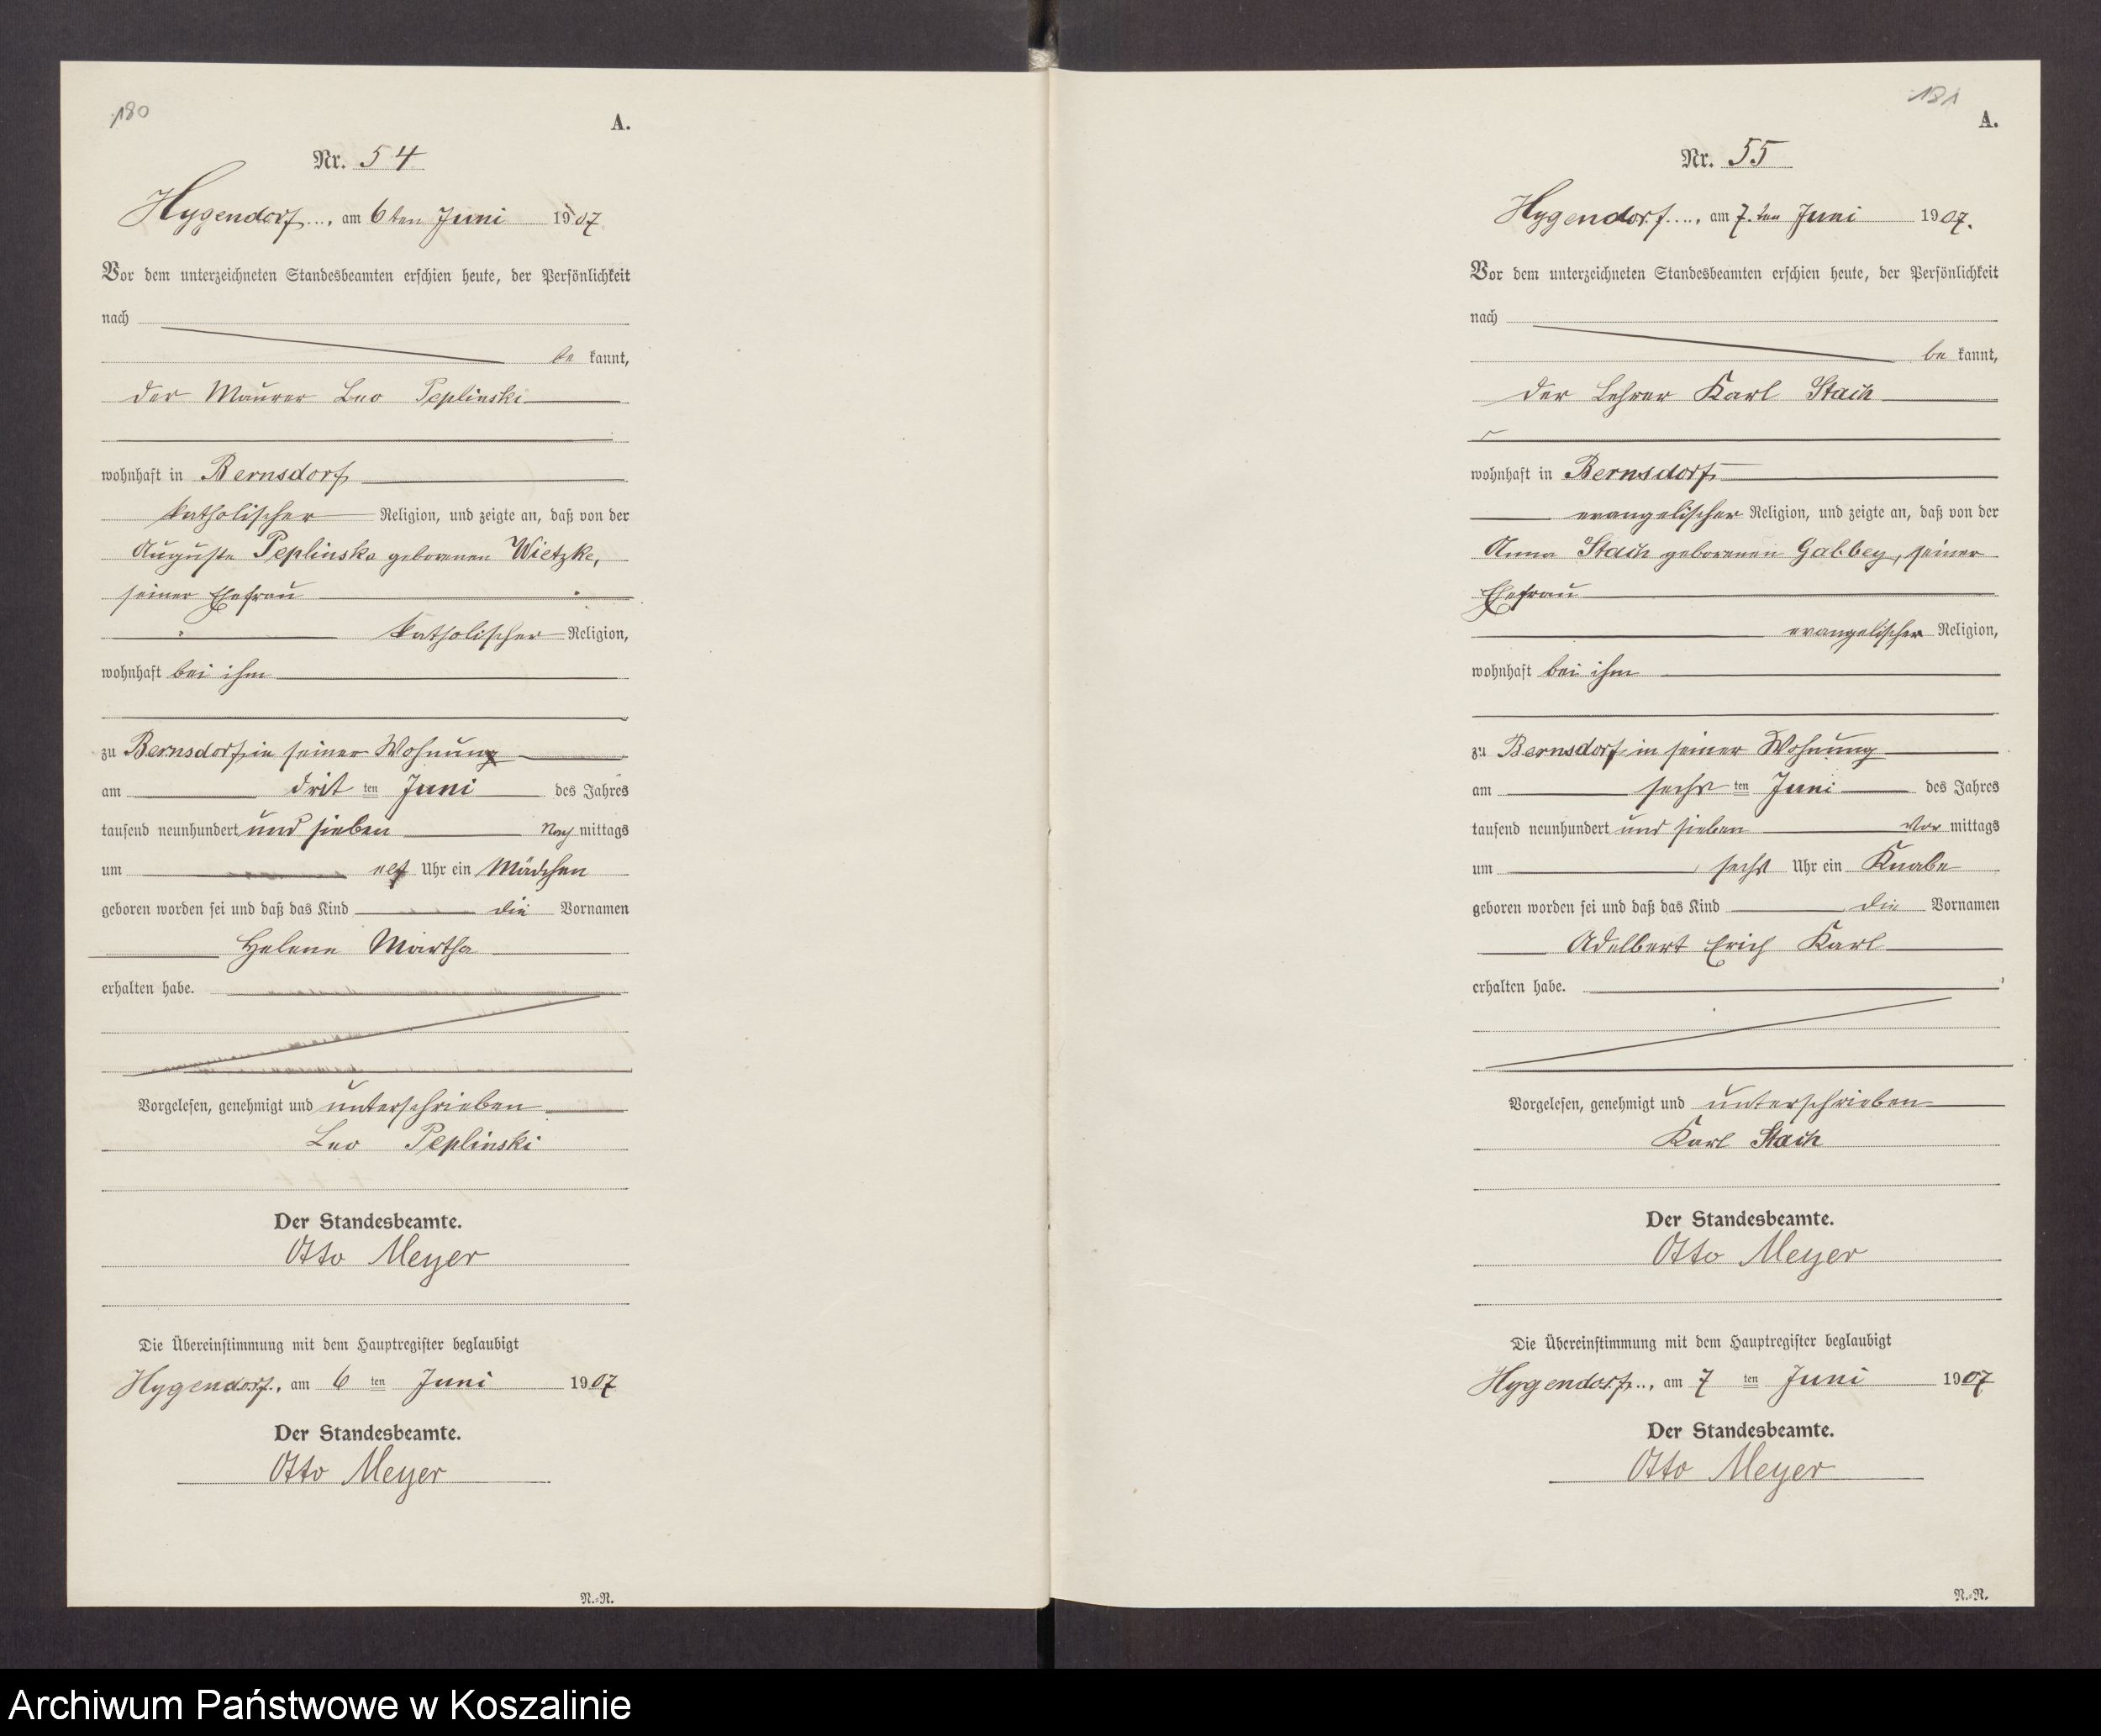 180
A.
Nr. 54
Hygendorf, am 6ten Juni 1907
Vor dem unterzeichneten Standesbeamten erschien heute, der Persönlichkeit
nach
be kannt,
der Maurer Leo Peplinski
wohnhaft in Bernsdorf
katholischer Religion, und zeigte an, daß von der
Auguste Peplinska geborenen Wietzke,
seiner Ehefrau
katholischer Religion,
wohnhaft bei ihm
zu Bernsdorf in seiner Wohnung
am drit ten Juni des Jahres
tausend neunhundert und sieben Nach mittags
um elf Uhr ein Mädchen
geboren worden sei und daß das Kind die Vornamen
Helene Martha
erhalten habe.
Vorgelesen, genehmigt und unterschrieben
Leo Peplinski
Der Standesbeamte.
Otto Meyer
Die Übereinstimmung mit dem Hauptregister beglaubigt
Hygendorf, am 6 ten Juni 1907
Der Standesbeamte.
Otto Meyer
N.-R.
181
A.
Nr. 55
Hygendorf, am 7.ten Juni 1907.
Vor dem unterzeichneten Standesbeamten erschien heute, der Persönlichkeit
nach
be kannt,
der Lehrer Karl Stach
wohnhaft in Bernsdorf
evangelischer Religion, und zeigte an, daß von der
Anna Stach geborenen Gabbey, seiner
Ehefrau
evangelischer Religion,
wohnhaft bei ihm
zu Bernsdorf in seiner Wohnung
am sechs ten Juni des Jahres
tausend neunhundert und sieben Vor mittags
um sechs Uhr ein Knabe
geboren worden sei und daß das Kind die Vornamen
Adelbert Erich Karl
erhalten habe.
Vorgelesen, genehmigt und unterschrieben
Karl Stach
Der Standesbeamte.
Otto Meyer
Die Übereinstimmung mit dem Hauptregister beglaubigt
Hygendorf, am 7 ten Juni 1907
Der Standesbeamte.
Otto Meyer
N.-R.
Archiwum Państwowe w Koszalinie